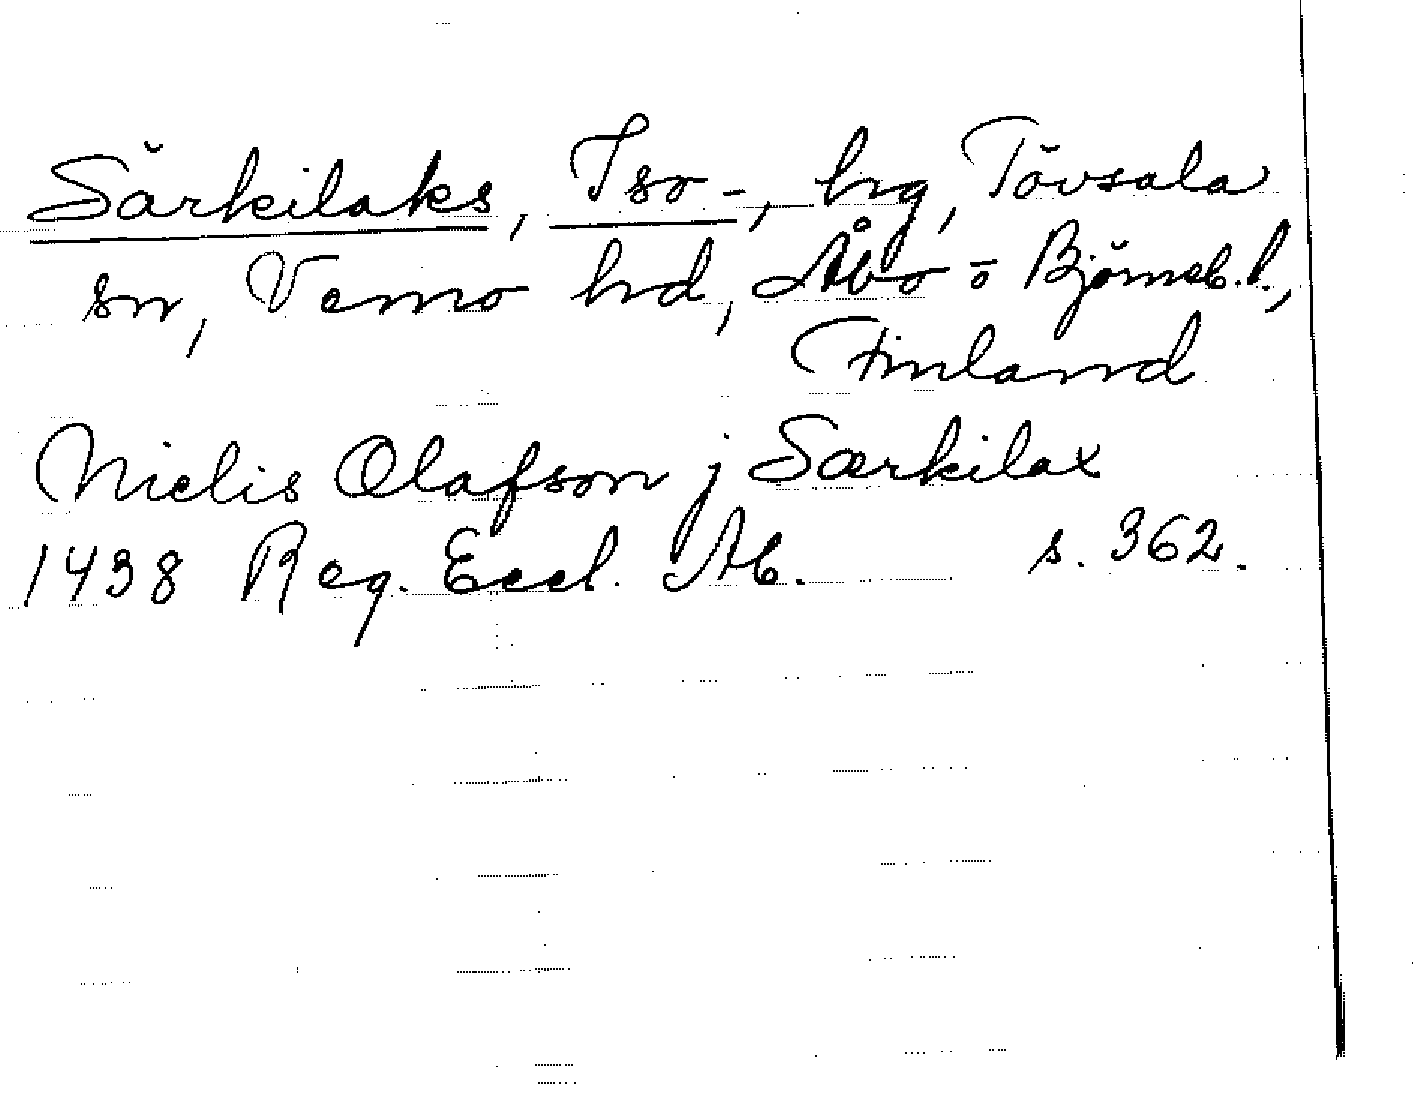 Särkilaks, Iso-, hrg, Tövsala
sn, Vemo hd, Åbo o Björneb. l.,
Finland
Nielis Olafson j Særkilax
1438 Reg. Eccl. Ab. s. 362.